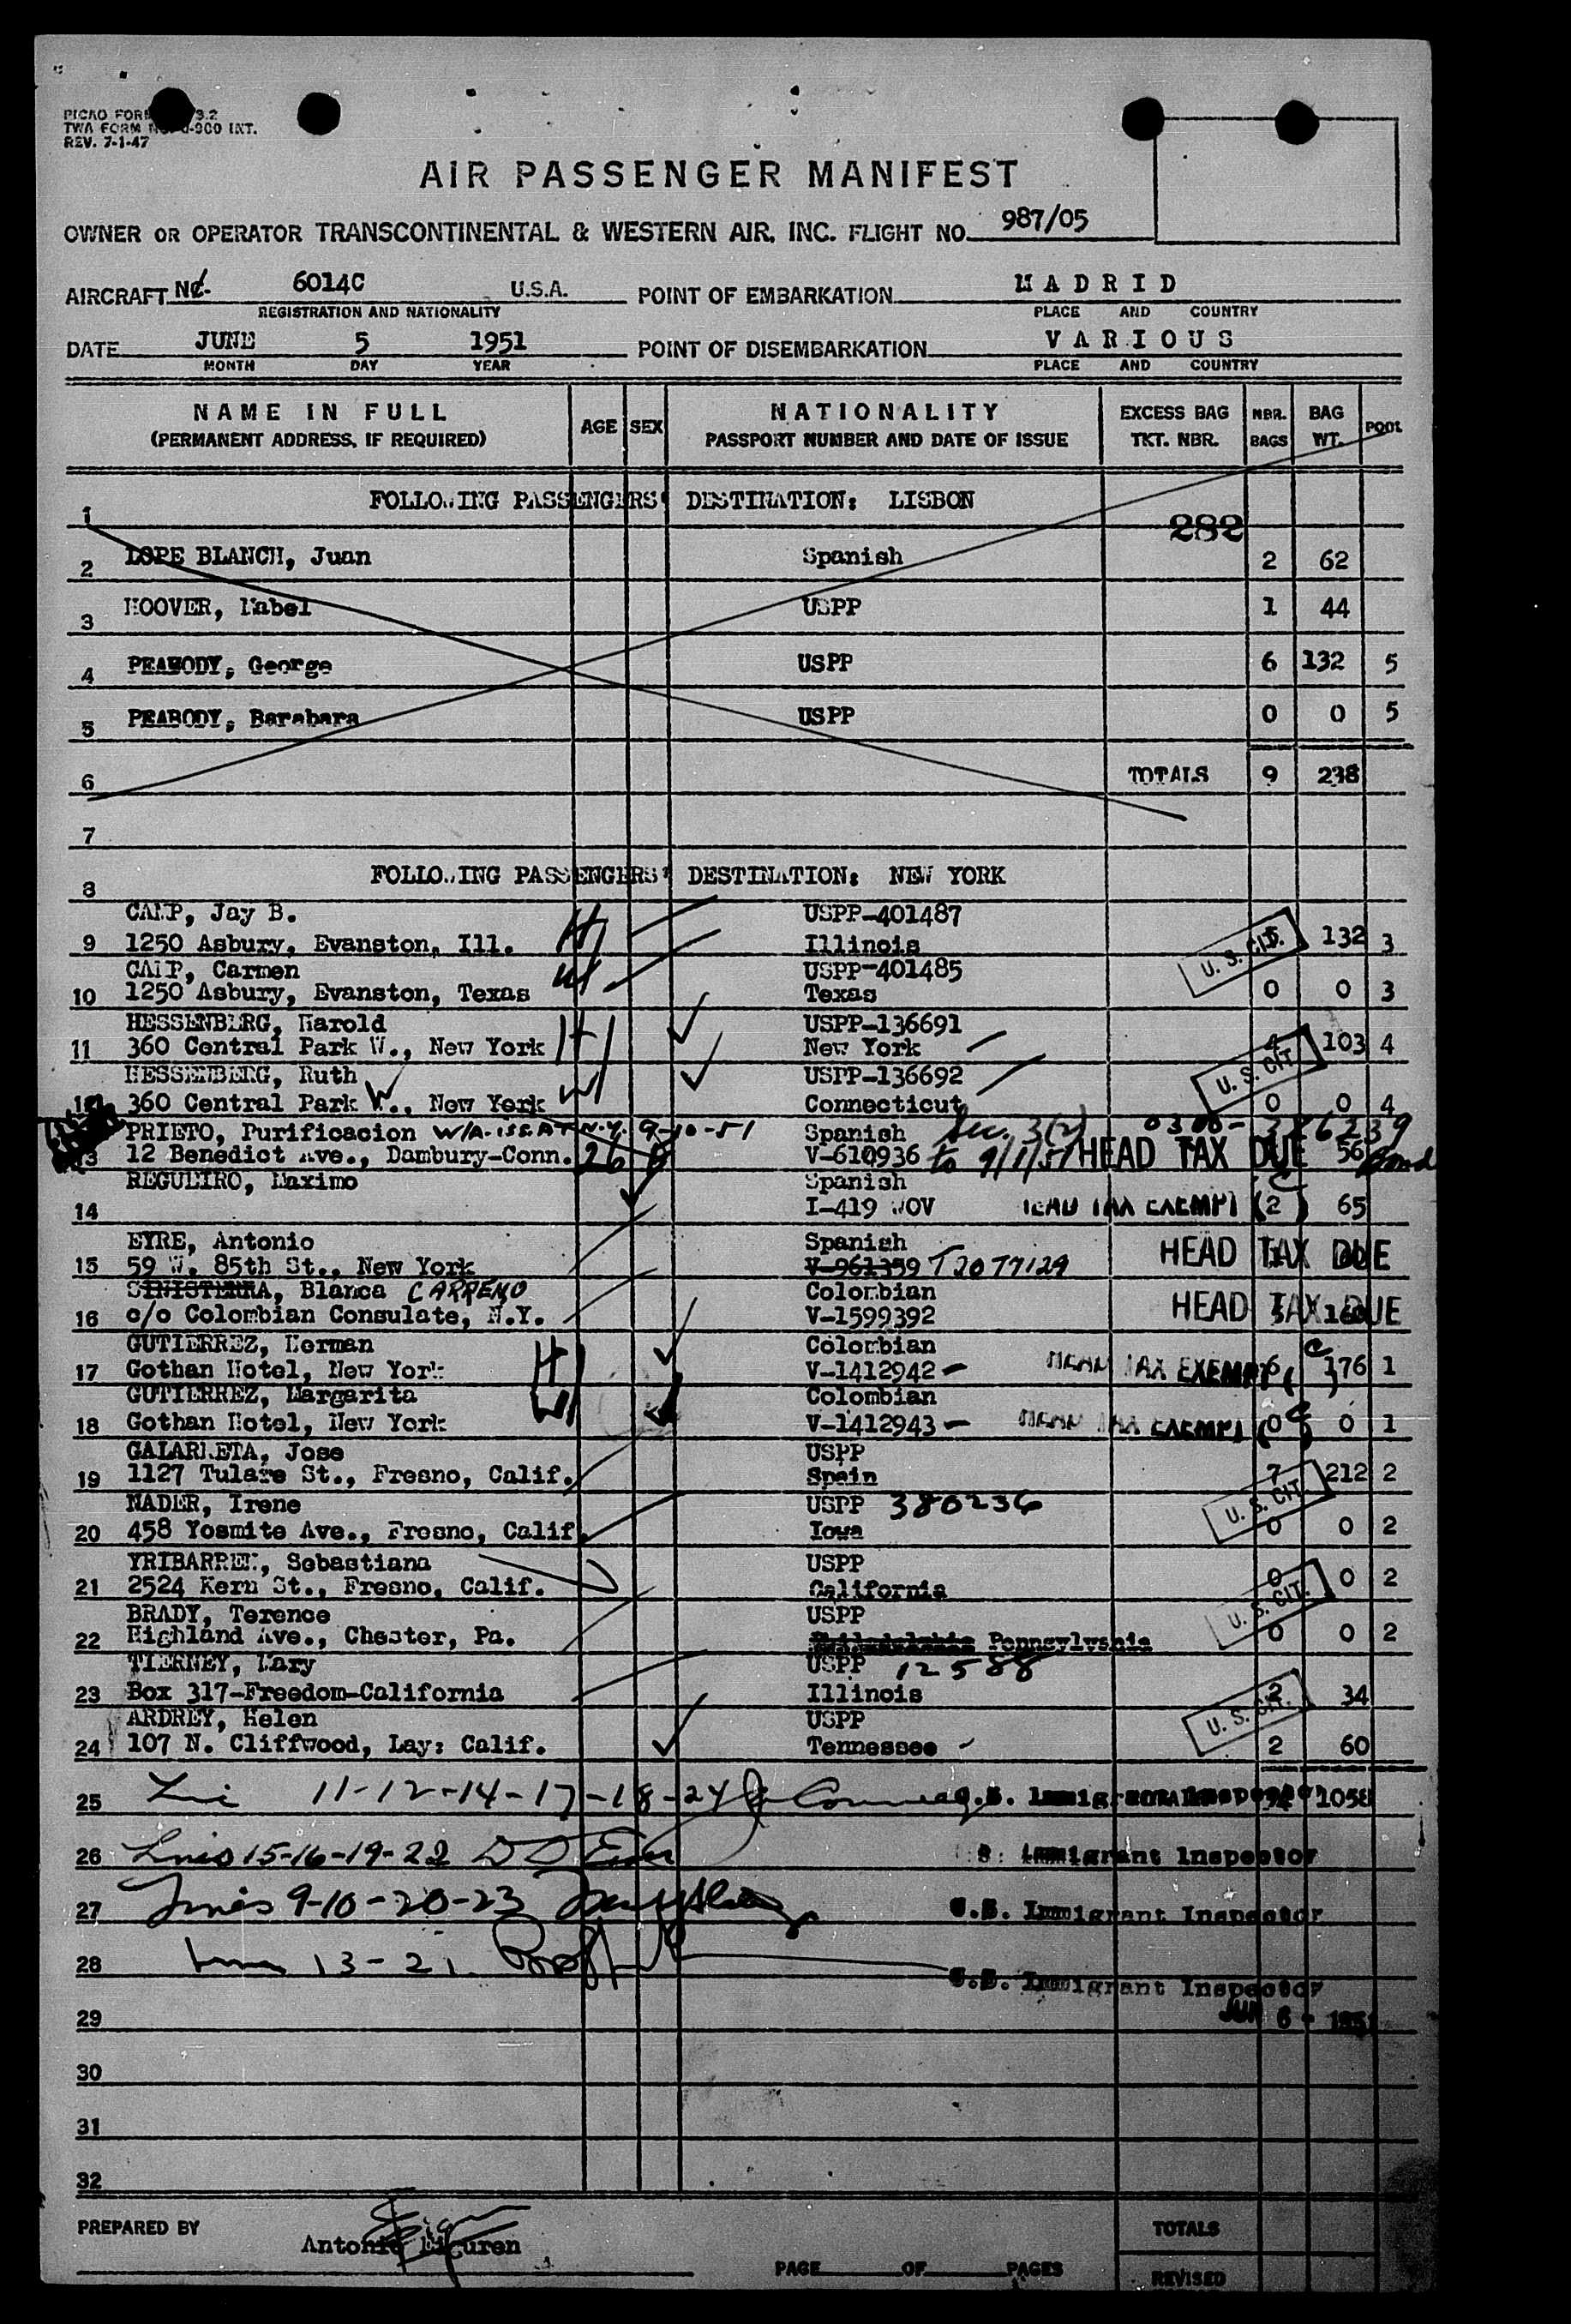 PICAO FORM 3.2
TWA FORM -900 INT.
REV. 7-1-47
AIR PASSENGER MANIFEST
OWNER OR OPERATOR TRANSCONTINENTAL & WESTERN AIR, INC. FLIGHT NO. 987/05
AIRCRAFT NC. 6014C U.S.A. POINT OF EMBARKATION MADRID
REGISTRATION AND NATIONALITY PLACE AND COUNTRY
DATE JUNE 5 1951 POINT OF DISEMBARKATION VARIOUS
MONTH DAY YEAR PLACE AND COUNTRY
NAME IN FULL AGE SEX NATIONALITY EXCESS BAG NBR. BAG POOL
(PERMANENT ADDRESS, IF REQUIRED) PASSPORT NUMBER AND DATE OF ISSUE TKT. NBR. BAGS WT.
1 FOLLOWING PASSENGERS' DESTINATION: LISBON
282
2 LOPE BLANCH, Juan Spanish 2 62
3 HOOVER, Mabel USPP 1 44
4 PEABODY, George USPP 6 132 5
5 PEABODY, Barabara USPP 0 0 5
6 TOTALS 9 238
7
8 FOLLOWING PASSENGERS' DESTINATION: NEW YORK
CAMP, Jay B. H USPP-401487
9 1250 Asbury, Evanston, Ill. Illinois U. S. CIT. 132 3
CAMP, Carmen W USPP-401485
10 1250 Asbury, Evanston, Texas Texas 0 0 3
HESSENBERG, Harold H USPP-136691
11 360 Central Park W., New York New York 4 103 4
HESSENBERG, Ruth W USPP-136692 U. S. CIT
12 360 Central Park W., New York Connecticut 0 0 4
PRIETO, Purificacion W/A-ISS. AT N.Y. 9-10-51 Spanish Sec. 3(2) 0300-
13 12 Benedict Ave., Dambury-Conn. 26 V-610936 to 9/1/51 HEAD TAX DUE 56 Bond
REGUEIRO, Maximo Spanish
14 I-419 NOV HEAD TAX EXEMPT (2) 65
EYRE, Antonio Spanish
15 59 W. 85th St., New York V-961359 T2077129 HEAD TAX DUE
SINISTERRA, Blanca CARRENO Colombian
16 c/o Colombian Consulate, N.Y. V-1599392 HEAD TAX DUE 160
GUTIERREZ, Herman H Colombian
17 Gothan Hotel, New York V-1412942 HEAD TAX EXEMPT 6 176 1
GUTIERREZ, Margarita W Colombian
18 Gothan Hotel, New York V-1412943 HEAD TAX EXEMPT (0) 0 1
GALARRETA, Jose USPP
19 1127 Tulare St., Fresno, Calif. Spain 7 212 2
NADER, Irene USPP 380236 U. S. CIT.
20 458 Yosmite Ave., Fresno, Calif. Iowa 0 0 2
YRIBARREN, Sebastiana USPP
21 2524 Kern St., Fresno, Calif. California 0 0 2
BRADY, Terence USPP U. S. CIT.
22 Highland Ave., Chester, Pa. Philadelphia Pennsylvania 0 0 2
TIERNEY, Mary USPP 12588
23 Box 317-Freedom-California Illinois 2 34
ARDREY, Helen USPP U. S.
24 107 N. Cliffwood, Lay: Calif. Tennessee 2 60
25 11-12-14-17-18-24 U.S. Immigrant Inspector 1058
26 15-16-19-22 U.S. Immigrant Inspector
27 9-10-20-23 U.S. Immigrant Inspector
28 13-21 U.S. Immigrant Inspector
29 JUN 6 - 1951
30
31
32
PREPARED BY Antonio Eiguren TOTALS
PAGE OF PAGES REVISED